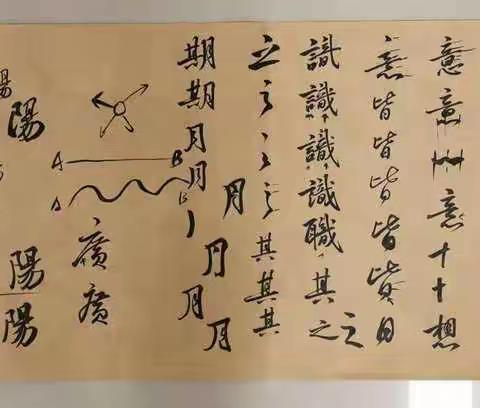 意意意十十想
意皆皆皆皆皆日
識識識識職其之之
之之之其其其
月月月
期期月月月
A B
A B
廣廣
陽陽陽
陽